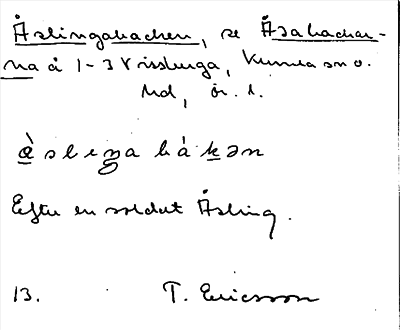 Åslingabacken, se Åsabackar-
na å 1-3 Vissberga, Kumla sn o.
hd, ör. l.
å̀slıŋa bàkən
Efter en soldat Åsling.
13. T. Ericsson